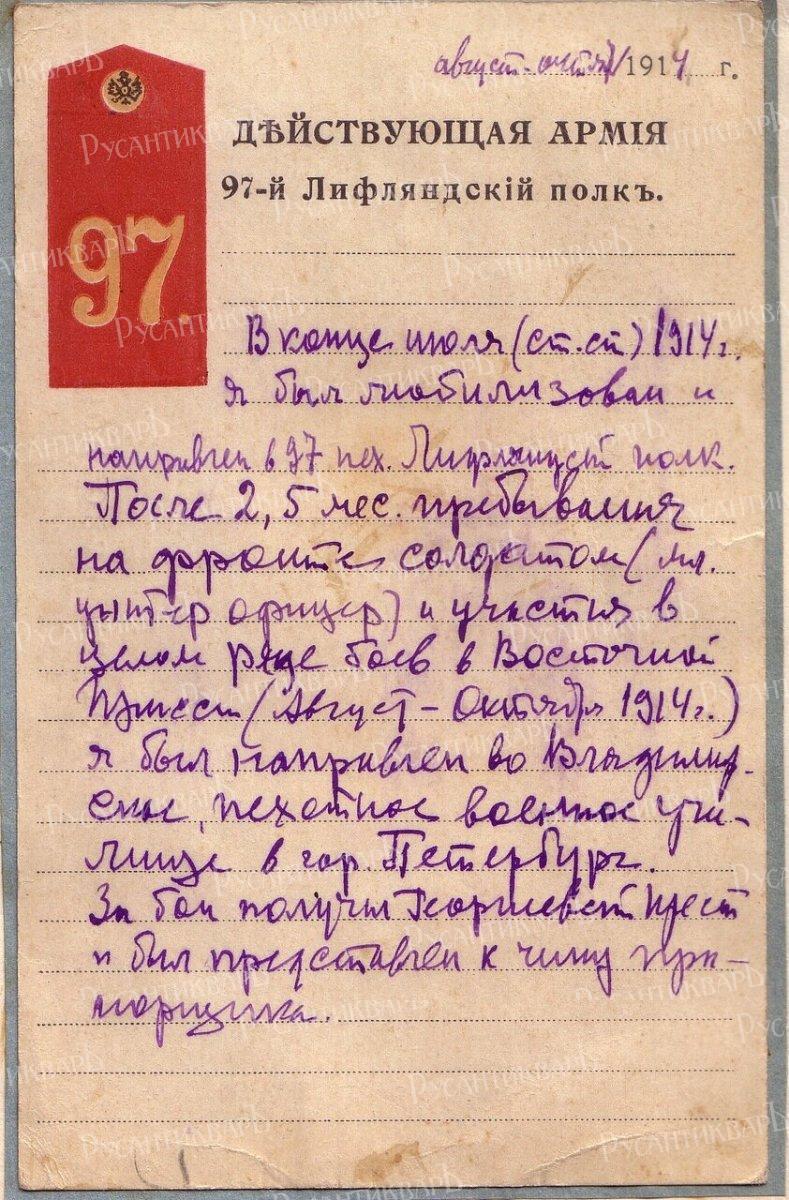 август-октяб/1914 г.
ДѢЙСТВУЮЩАЯ АРМІЯ
97-й Лифляндскій полкъ.
97.
В конце июля (ст.ст) 1914г.
я был мобилизован и
направлен в 97 пех. Лифляндст полк.
После 2,5 мес. пребывания
на фронте солдатом (мл.
унт-ер офицер) и участия в
целом ряде боев в Восточной
Пруссии (Август – Октября 1914г.)
я был направлен во Владимир.
ское, пехотное военное учи-
лище в гор. Петербург.
За бои получил Георгиевст Крест
и был представлен к чину пра-
порщика.
РУСАНТИКВАРЪ